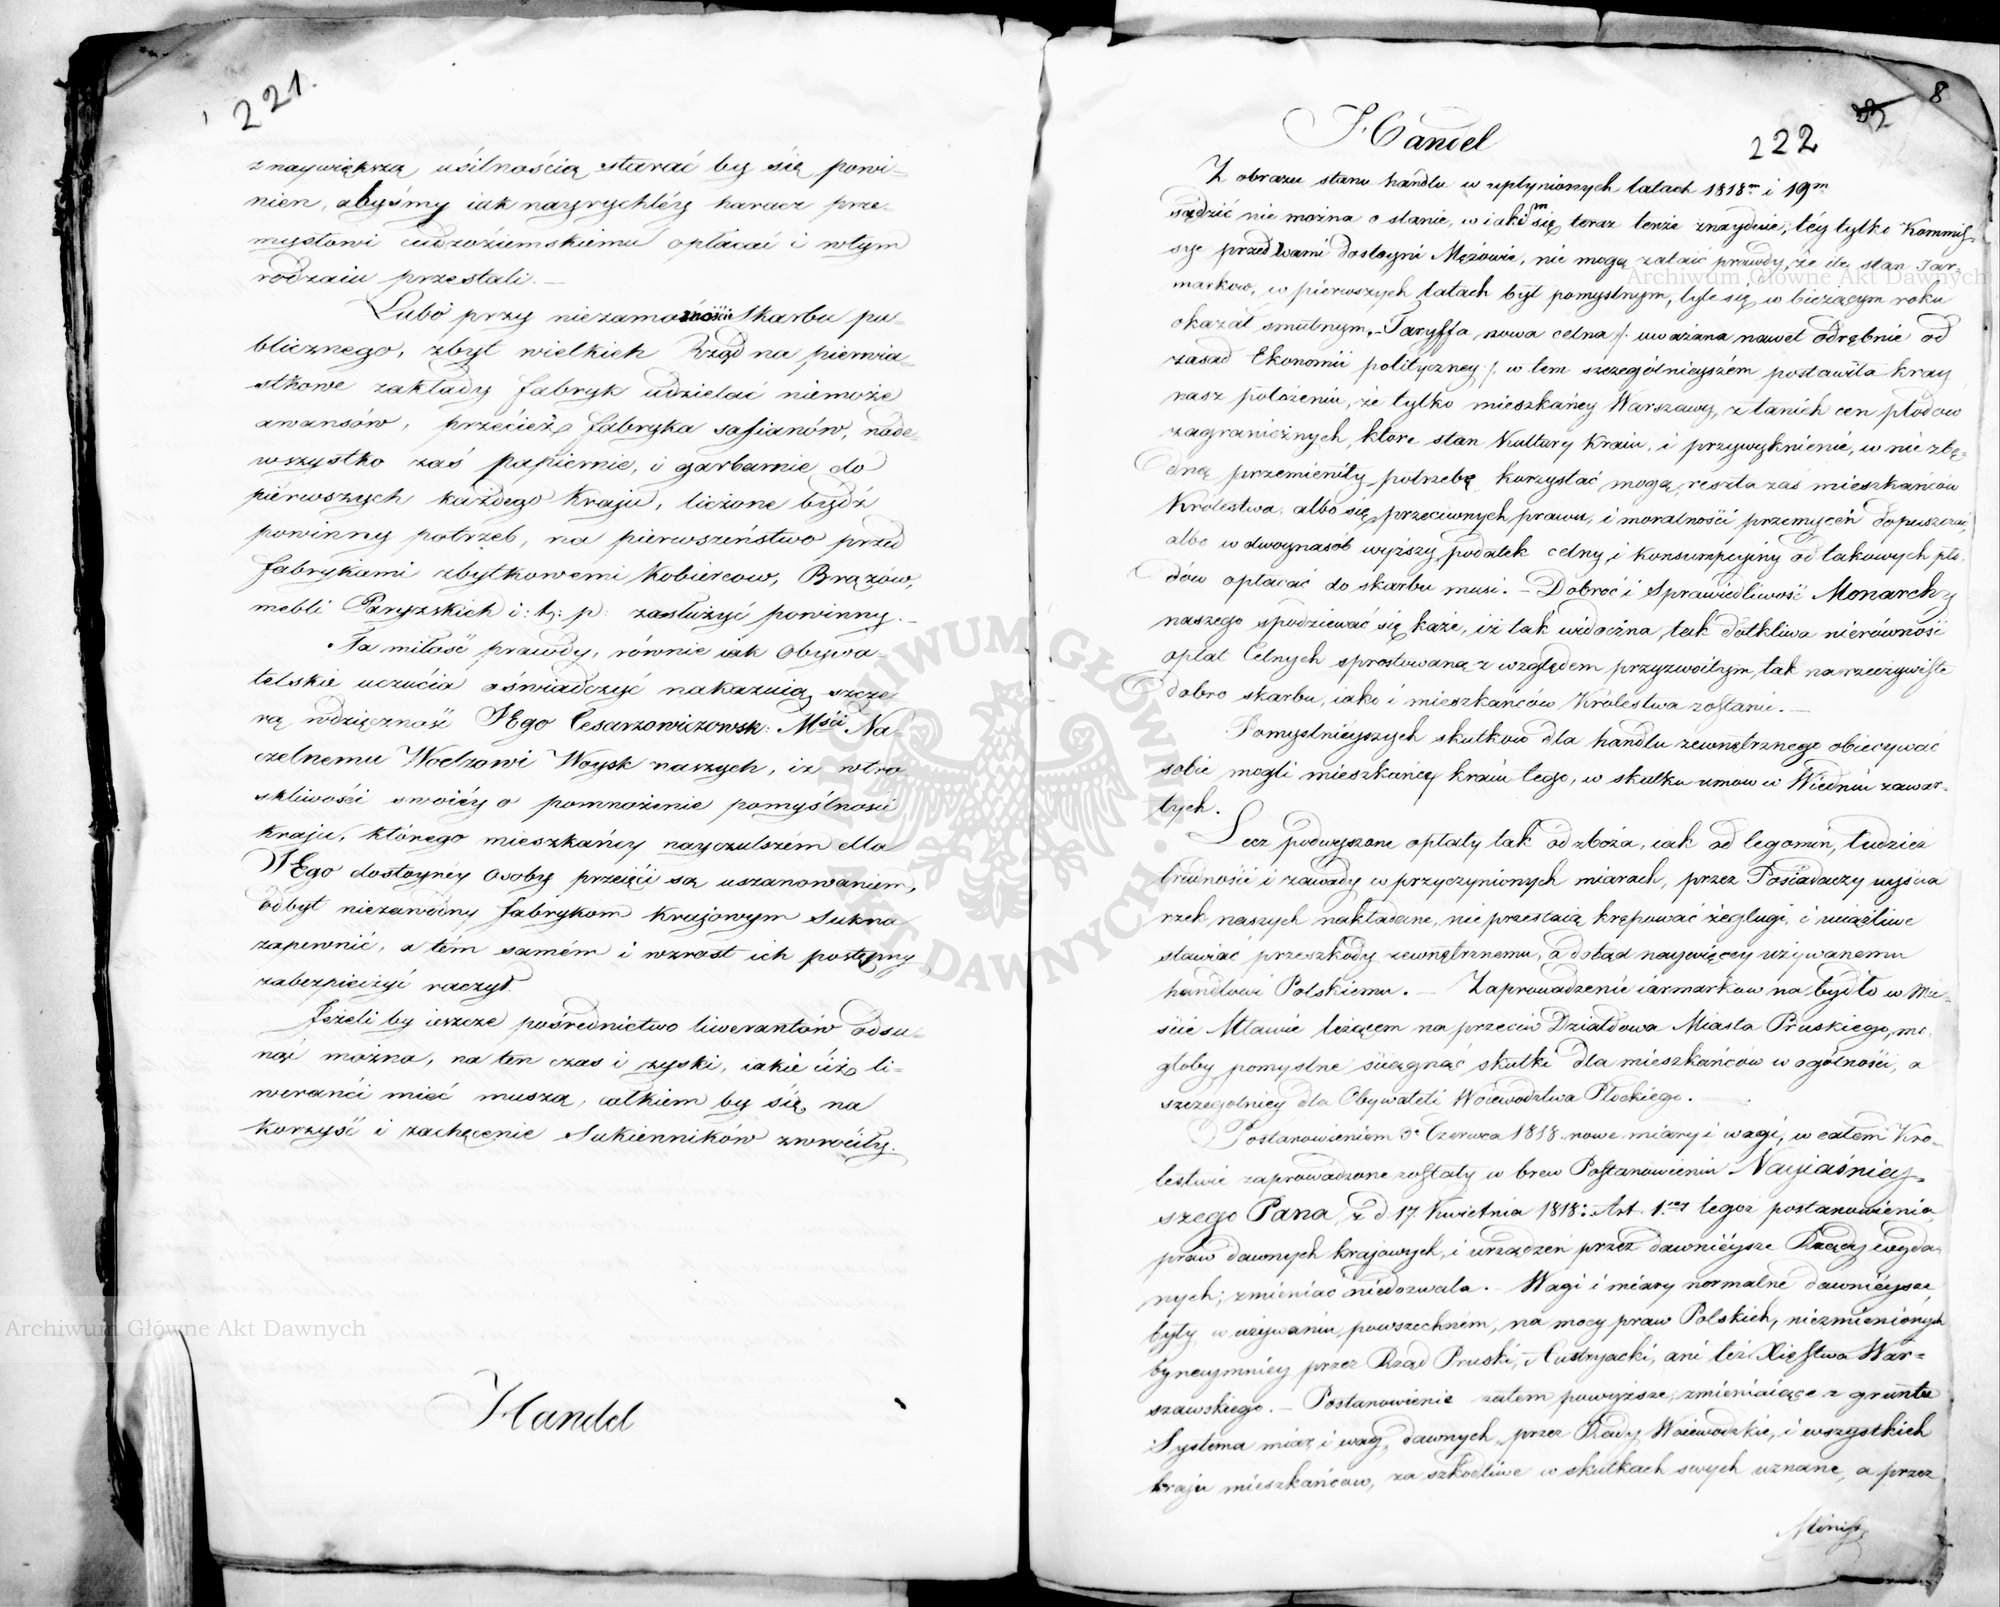 221.
z naywiększą usilnością starać by się powi-
nien, abyśmy iak nayrychléy haracz prze-
mysłowi cudzoziemskiemu opłacać i w tym
rodzaiu przestali. —
Lubo przy niezamożności Skarbu pu-
blicznego, zbyt wielkich Rząd na pierwia-
stkowe zakłady fabryk udzielać niemoże
awansów, przecież fabryka safianów, nade-
wszystko zaś papiernie, i garbarnie do
pierwszych każdego Kraju, liczone bydź
powinny potrzeb, na pierwszeństwo przed
fabrykami zbytkowemi Kobiercow, Brązów,
mebli Paryzkich i: t: p: zasłużyć powinny. —
Ta miłość prawdy, równie iak Obywa-
telskie uczucia oświadczyć nakazuią szcze
rą wdzięczność JEgo Cesarzowiczowsk: Mści Na-
czelnemu Wodzowi Woysk naszych, iż w tro
skliwości swoiéy o pomnożenie pomyślności
kraju, którego mieszkańcy nayczulszém dla
JEgo dostoynéy Osoby przeięci są uszanowaniem,
odbyt niezawodny fabrykom Krajowym Sukna
zapewnić, a tém samém i wzrost ich postępny
zabezpieczyć raczył.
Jeżeli by ieszcze pośrednictwo liwerantów odsu-
nąć można, na ten czas i zyski, iakie iiż li-
weranći mieć muszą, całkiem by się na
korzyść i zachęcenie Sukienników zwróciły.
Handel
8
32
222
Handel
Z obrazu stanu handlu w upłynionych latach 1818m i 19m
sądzić nie można o stanie, w iakim się teraz tenże znayduie, téy tylko Kommis-
sye przed Wami Dostoyni Mężowie, nie mogą zataić prawdy, że ile stan Jar-
markow, w pierwszych latach był pomyslnym, tyle się w bieżącym roku
okazał smutnym. — Taryffa nowa celna /: uważana nawet odrębnie od
zasad Ekonomii polityczney :/ w tem szczególnieyszém postawiła kray
nasz położeniu, że tylko mieszkańcy Warszawy, z tanich cen płodow
zagranicznych, ktore stan Kultury Kraiu, i przywyknienie, w nie zbę-
dną przemieniły potrzebę korzystać mogą, reszta zaś mieszkańców
Królestwa, albo się przeciwnych prawu, i moralności przemyceń dopuszczać,
albo w dwoynasób wyższy podatek celny i konsumpcyjny od takowych pło-
dów opłacać do skarbu musi. — Dobroć i Sprawiedliwość Monarchy
naszego spodziewać się każe, iż tak widoczna, tak dotkliwa nierówność
opłat Celnych sprostowaną z względem przyzwoitym, tak na rzeczywiste
dobro skarbu, iako i mieszkańców Królestwa zostanie. —
Pomyslnieyszych skutkow dla handlu zewnętrznego obiecywać
sobie mogli mieszkańcy kraiu tego, w skutku umow w Wiedniu zawar-
tych.
Lecz podwyszone opłaty tak od zboża, iak od legomin, tudzież
trudności i zawady w przyczynionych miarach, przez Posiadaczy uyścia
rzek naszych nakładane, nie przestaią krępować żeglugi, i uciążliwe
stawiać przeszkody zewnętrznemu, a dotąd naywięcey używanemu
handlowi Polskiemu. — Zaprowadzenie iarmarkow na bydło w Mie-
ście Mławie leżącem na przeciw Działdowa Miasta Pruskiego, mo-
głoby pomyslne sciągnąć skutki dla mieszkańców w ogólności, a
szczególniey dla Obywateli Woiewodztwa Płockiego. —
Postanowieniem 3o Czerwca 1818 nowe miary i wagi, w całem Kro-
lestwie zaprowadzone zostały w brew Postanowieniu Nayiaśniey-
szego Pana, z d. 17. Kwietnia 1818: Art. 1.szy tegoż postanowienia,
praw dawnych krajowych, i urządzeń przez dawnieysze Rządy wyda-
nych, zmieniać niedozwala. — Wagi i miary normalne dawnieysze,
były w używaniu powszechném, na mocy praw Polskich, niezmienionych
bynaymniey przez Rząd Pruski, Austryacki, ani też Xięstwa War-
szawskiego. — Postanowienie zatem powyższe, zmieniaiące z gruntu
Systema miar i wag, dawnych, przez Rady Woiewodzkie, i wszystkich
kraju mieszkańcow, za szkodliwe w skutkach swych uznane, a przez
Minist
Archiwum Główne Akt Dawnych
Archiwum Główne Akt Dawnych
ARCHIWUM GŁÓWNE AKT DAWNYCH